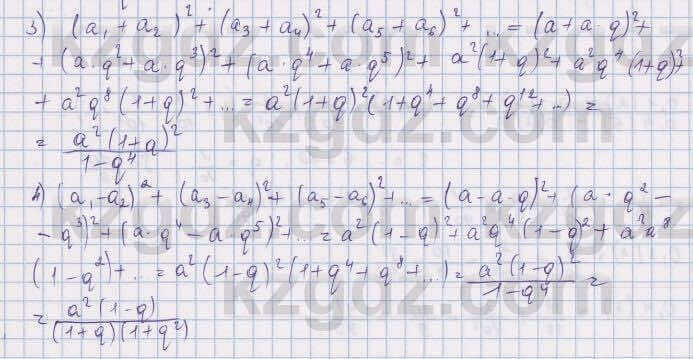 3) (a₁ + a₂)² + (a₃ + a₄)² + (a₅ + a₆)² + ... = (a + a·q)² +
+ (a·q² + a·q³)² + (a·q⁴ + a·q⁵)² + a²(1+q)² + a²q⁴(1+q)² +
+ a²q⁸(1+q)² + ... = a²(1+q)²(1 + q⁴ + q⁸ + q¹² + ...) =
= a²(1+q)² / 1-q⁴
4) (a₁-a₂)² + (a₃-a₄)² + (a₅-a₆)² + ... = (a-a·q)² + (a·q² -
- q³)² + (a·q⁴ - a·q⁵)² + ... = a²(1-q)² + a²q⁴(1-q)² + a²q⁸
(1-q²) + ... = a²(1-q)²(1+q⁴+q⁸+...) = a²(1-q)² / 1-q⁴ =
= a²(1-q) / (1+q)(1+q²)
kzgdz.com